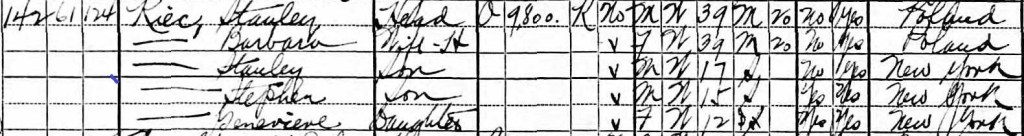 142 61 124 Kiec, Stanley Head O 9800. R No M W 39 M 20 No Yes Poland
— Barbara Wife-H V F W 39 M 20 No Yes Poland
— Stanley Son V M W 17 S No Yes New York
— Stephen Son V M W 15 S Yes Yes New York
— Genevieve Daughter V F W 12 S Yes Yes New York